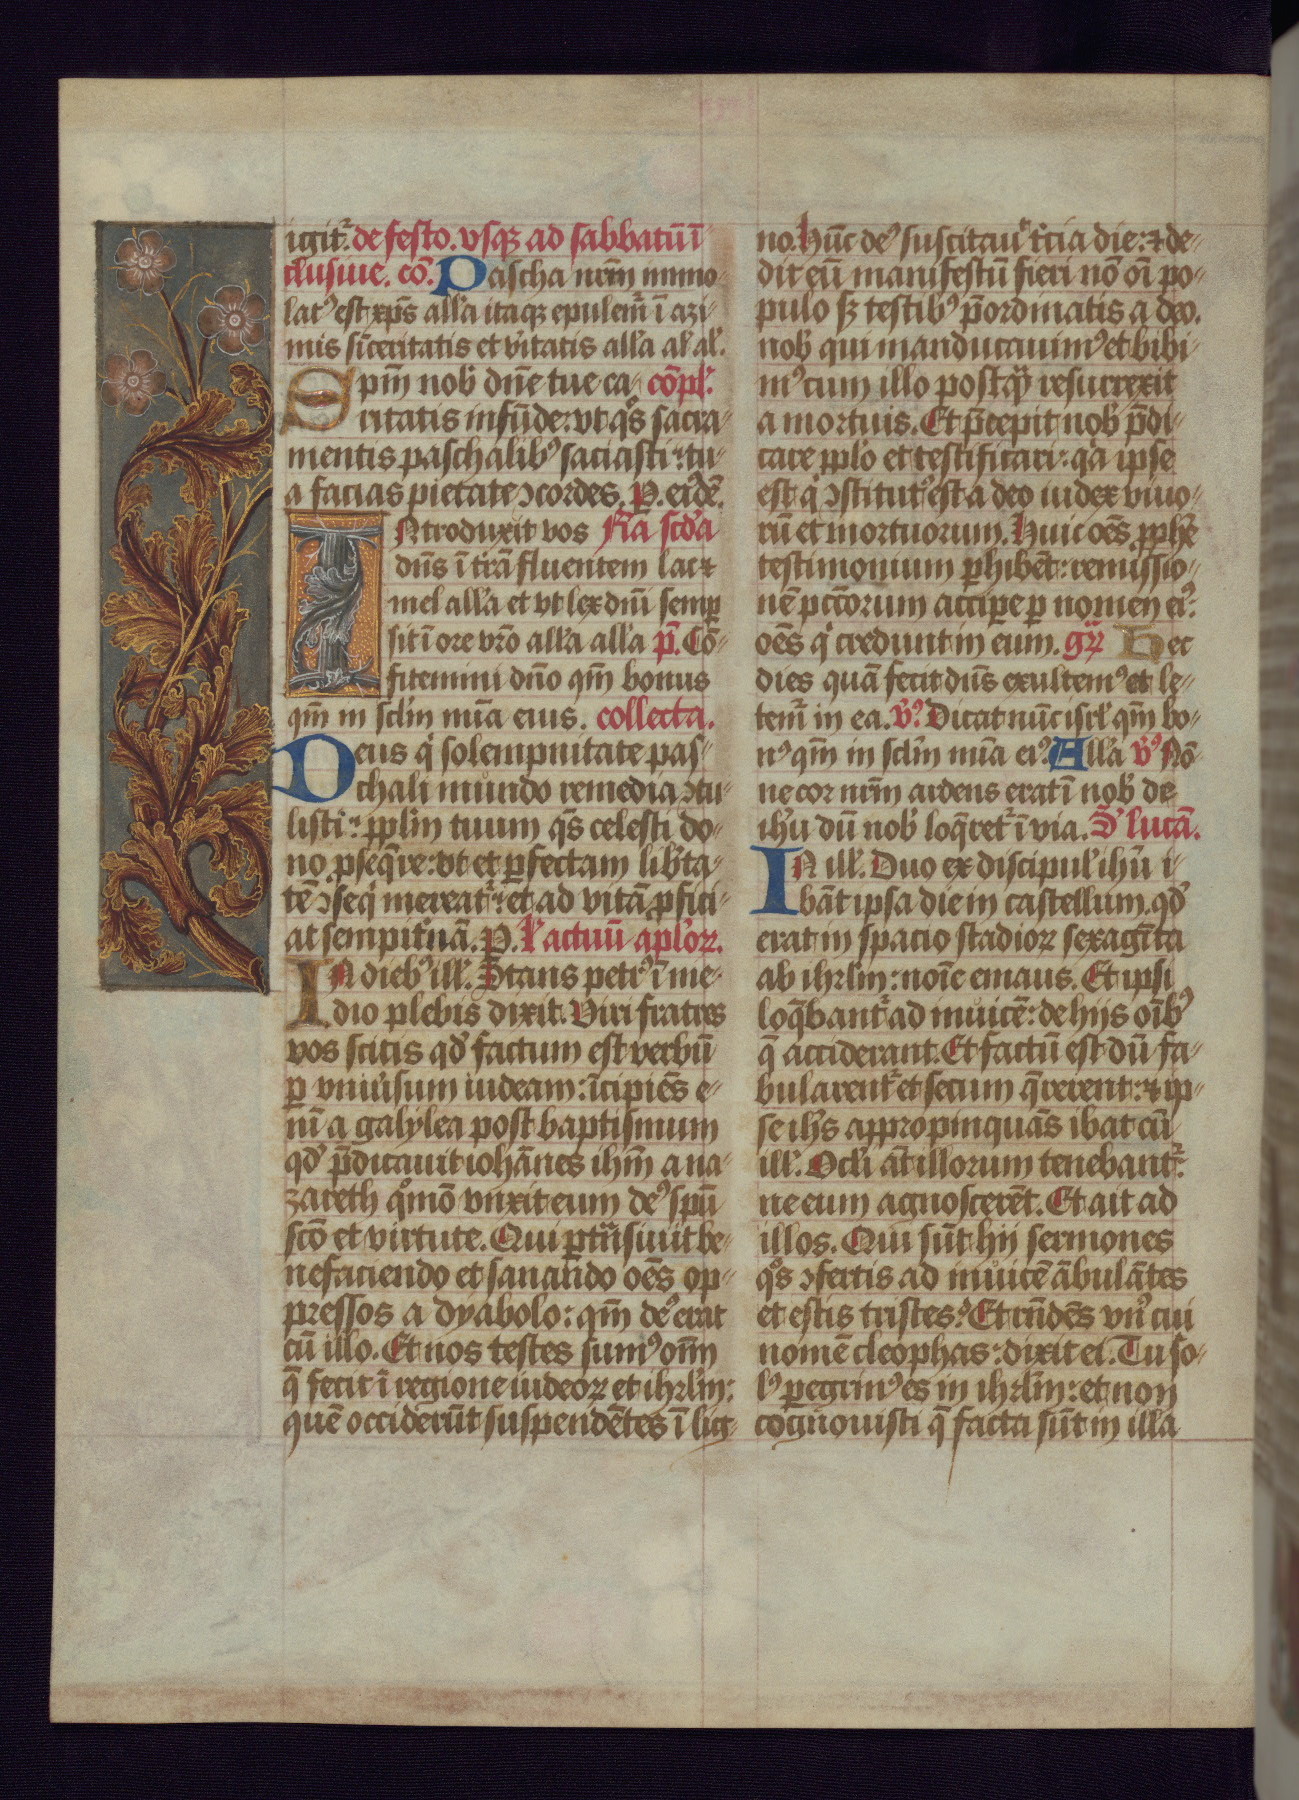 igit᷑. de festo. vsqꝫ ad sabbatū ī
clusiue. cō. Pascha nr̄m immo-
lat᷒ est xp̄s all'a itaqꝫ epulem᷑ ī azi-
mis sīceritatis et v̓itatis all'a al' al'.
Spm̄ nob̓ dn̄e tue ca- cōpl'.
ritatis infūde: vt qͦs sacra-
mentis paschalib᷒ saciasti: tu-
a facias pietate ꝯcordes. P. eūdē.
INtroduxit vos Fr̄ia scd'a
dn̄s ī tr̄ā fluentem lac ⁊
mel all'a et vt lex dn̄i semꝑ
sit ī ore vr̄o all'a all'a p̄. Cō-
fitemini dn̄o qm̄ bonus
qm̄ in scl̄m mīa eius. collecta.
Deus qͥ solempnitate pas-
chali mundo remedia ꝯtu-
listi: ppl̄m tuum qs̄ celesti do-
no ꝓseq̄re: vt et ꝑfectam lib̓ta-
tē ꝯseqͥ mereat᷑: et ad vitā ꝓfici-
at sempit̓nā. P. l' actuū apl'oꝝ.
IN dieb᷒ ill'. Stans petr᷒ ī me-
dio plebis dixit. Viri fratres
vos scitis qd̓ factum est verbū
ꝑ vniu̓sum iudeam: īcipiēs e-
nī a galylea post baptismum
qd̓ p̄dicauit iohānes ihm̄ a na-
zareth qͦmō vnxit eum de᷒ sp̄u
scō et virtute. Qui ꝑtrāsiuit be-
nefaciendo et sanando oēs op-
pressos a dyabolo: qm̄ de᷒ erat
cū illo. Et nos testes sum᷒ oīm
q̄ fecit ī regione iudeoꝝ et ihrl̄m:
quē occiderūt suspendētes ī lig-
no. Hūc de᷒ suscitauͥt t̓cia die: ⁊ de-
dit eū manifestū fieri nō oī po-
pulo sꝫ testib᷒ p̄ordinatis a deo.
nob̓ qui manducauim᷒ et bibi-
m᷒ cum illo postqͣ̄ resurrexit
a mortuis. Et p̄cepit nob̓ p̄di-
care pplo et testificari: qa ipse
est qͥ ꝯstitut᷒ est a deo iudex viuo-
rū et mortuorum. Huic oēs ꝓphē
testimonium ꝑhibēt: remissio-
nē pctōrum accipe ꝑ nomen ei᷒:
oēs qͥ credunt in eum. gr̄ Hec
dies quā fecit dn̄s exultem᷒ et le-
tem᷑ in ea. v᷒. Dicat nūc isrl̓ qm̄ bo-
n᷒ qm̄ in scl̄m mīa ei᷒ All'a v᷒ Nō-
ne cor nr̄m ardens erat ī nob̓ de
ihū dū nob̓ loq̄ret᷑ ī via. S' lucā.
IN ill'. Duo ex discipul' ihū i-
bāt ipsa die in castellum. qd̓
erat in spacio stadioꝝ sexagīta
ab ihrl̄m: noīe emaus. Et ipsi
loq̄bant᷑ ad inuicē: de hijs oīb᷒
q̄ acciderant. Et factū est dū fa-
bularent᷑ et secum q̄rerent: ⁊ ip-
se ihs̄ appropinquās ibat cū
ill'. Ocl̓i āt illorum tenebant᷑:
ne eum agnoscerēt. Et ait ad
illos. Qui sūt hij sermones
qͦs ꝯfertis ad inuicē ābulātes
et estis tristes? Et rn̄dēs vn᷒ cui
nomē cleophas: dixit ei. Tu so-
l᷒ ꝑegrin᷒ es in ihrl̄m: et non
cognouisti q̄ facta sūt in illa